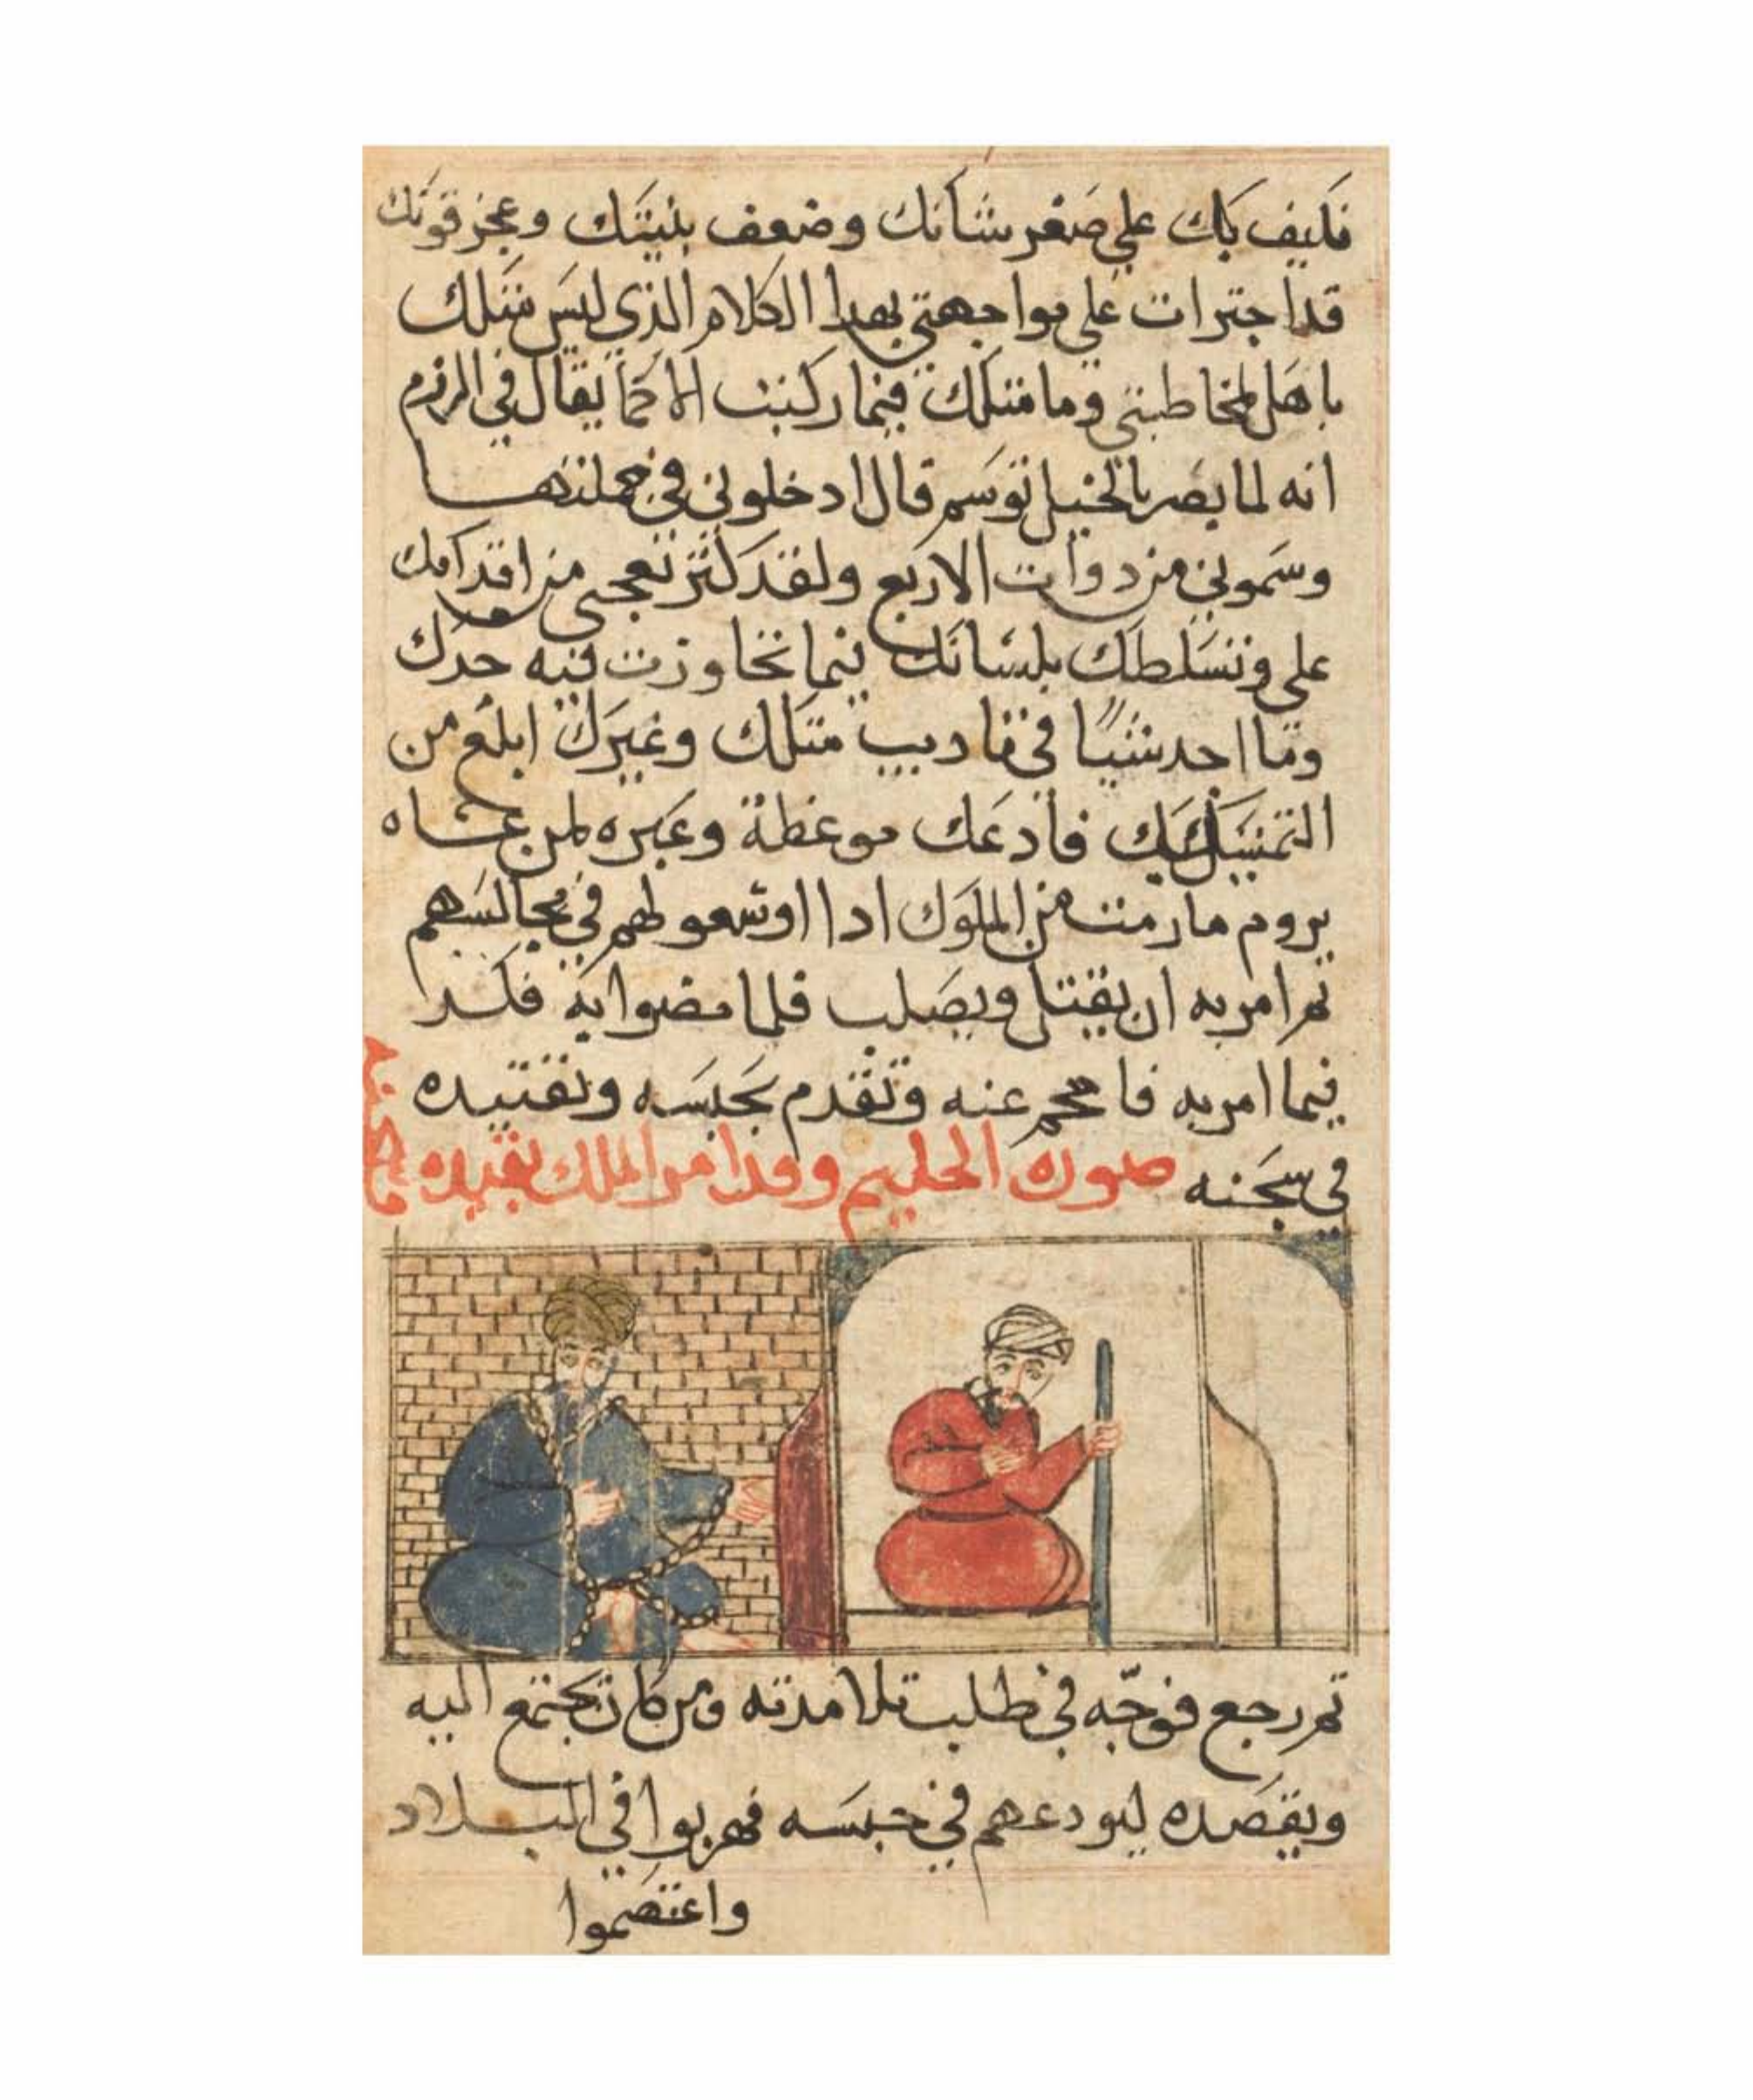 فكيف بك علي صغر شانك وضعف بنيتك وعجز قوتك
قد اجترات علي مواجهتي بهدا الكلام الذي ليس مثلك
باهل لمخاطبتي وما مثلك فيما ركنت الا كما يقال في
انه لما بصر بالخيل توسم قال ادخلوني في جملتها
وسموني من دوات الاربع ولقد كثر تعجبي من اقدامك
علي وتسلطك بلسانك فيما تجاوزت فيه حدك
وما اجد شيا في تاديب مثلك وغيرك ابلغ من
التمثيل بك فادعك موعظة وعبره لمن عساه
يروم ما رمت من الملوك ادا اوسعو لهم في مجالسهم
تم امر به ان يقتل ويصلب فلما مضوا به فكر
فيما امر به فاحجم عنه وتقدم بحبسه وتقييده
في سجنه صورة الحليم وقد امر الملك بقيده
تم رجع فوجّه في طلب تلامدته ومن كان يجتمع اليه
ويقصده ليودعهم في حبسه فهربوا في البلاد
واعتصموا